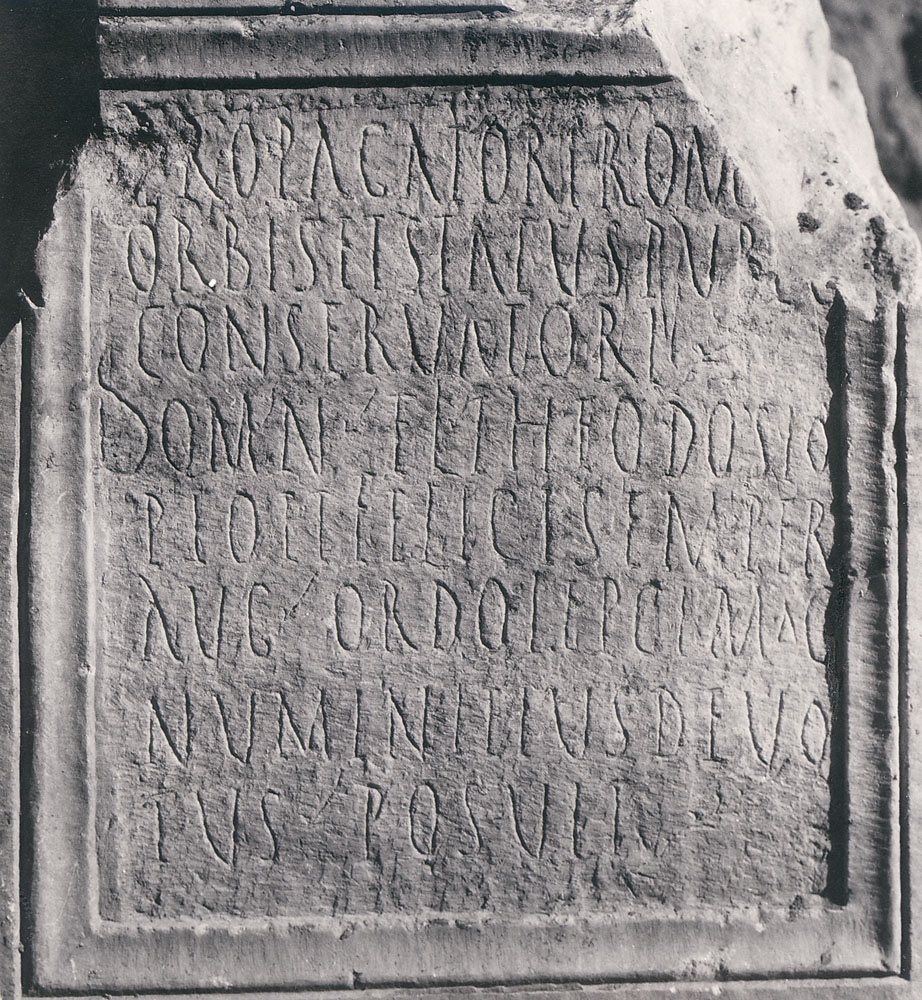 PROPAGATORI ROM
ORBIS ET STATUS PUB
CONSERVATORI
DOMN FL THEODOSIO
PIO ET FELICI SEMPER
AUG ORDO LEPCIMAG
NUMINI EIUS DEVO
TUS POSUIT